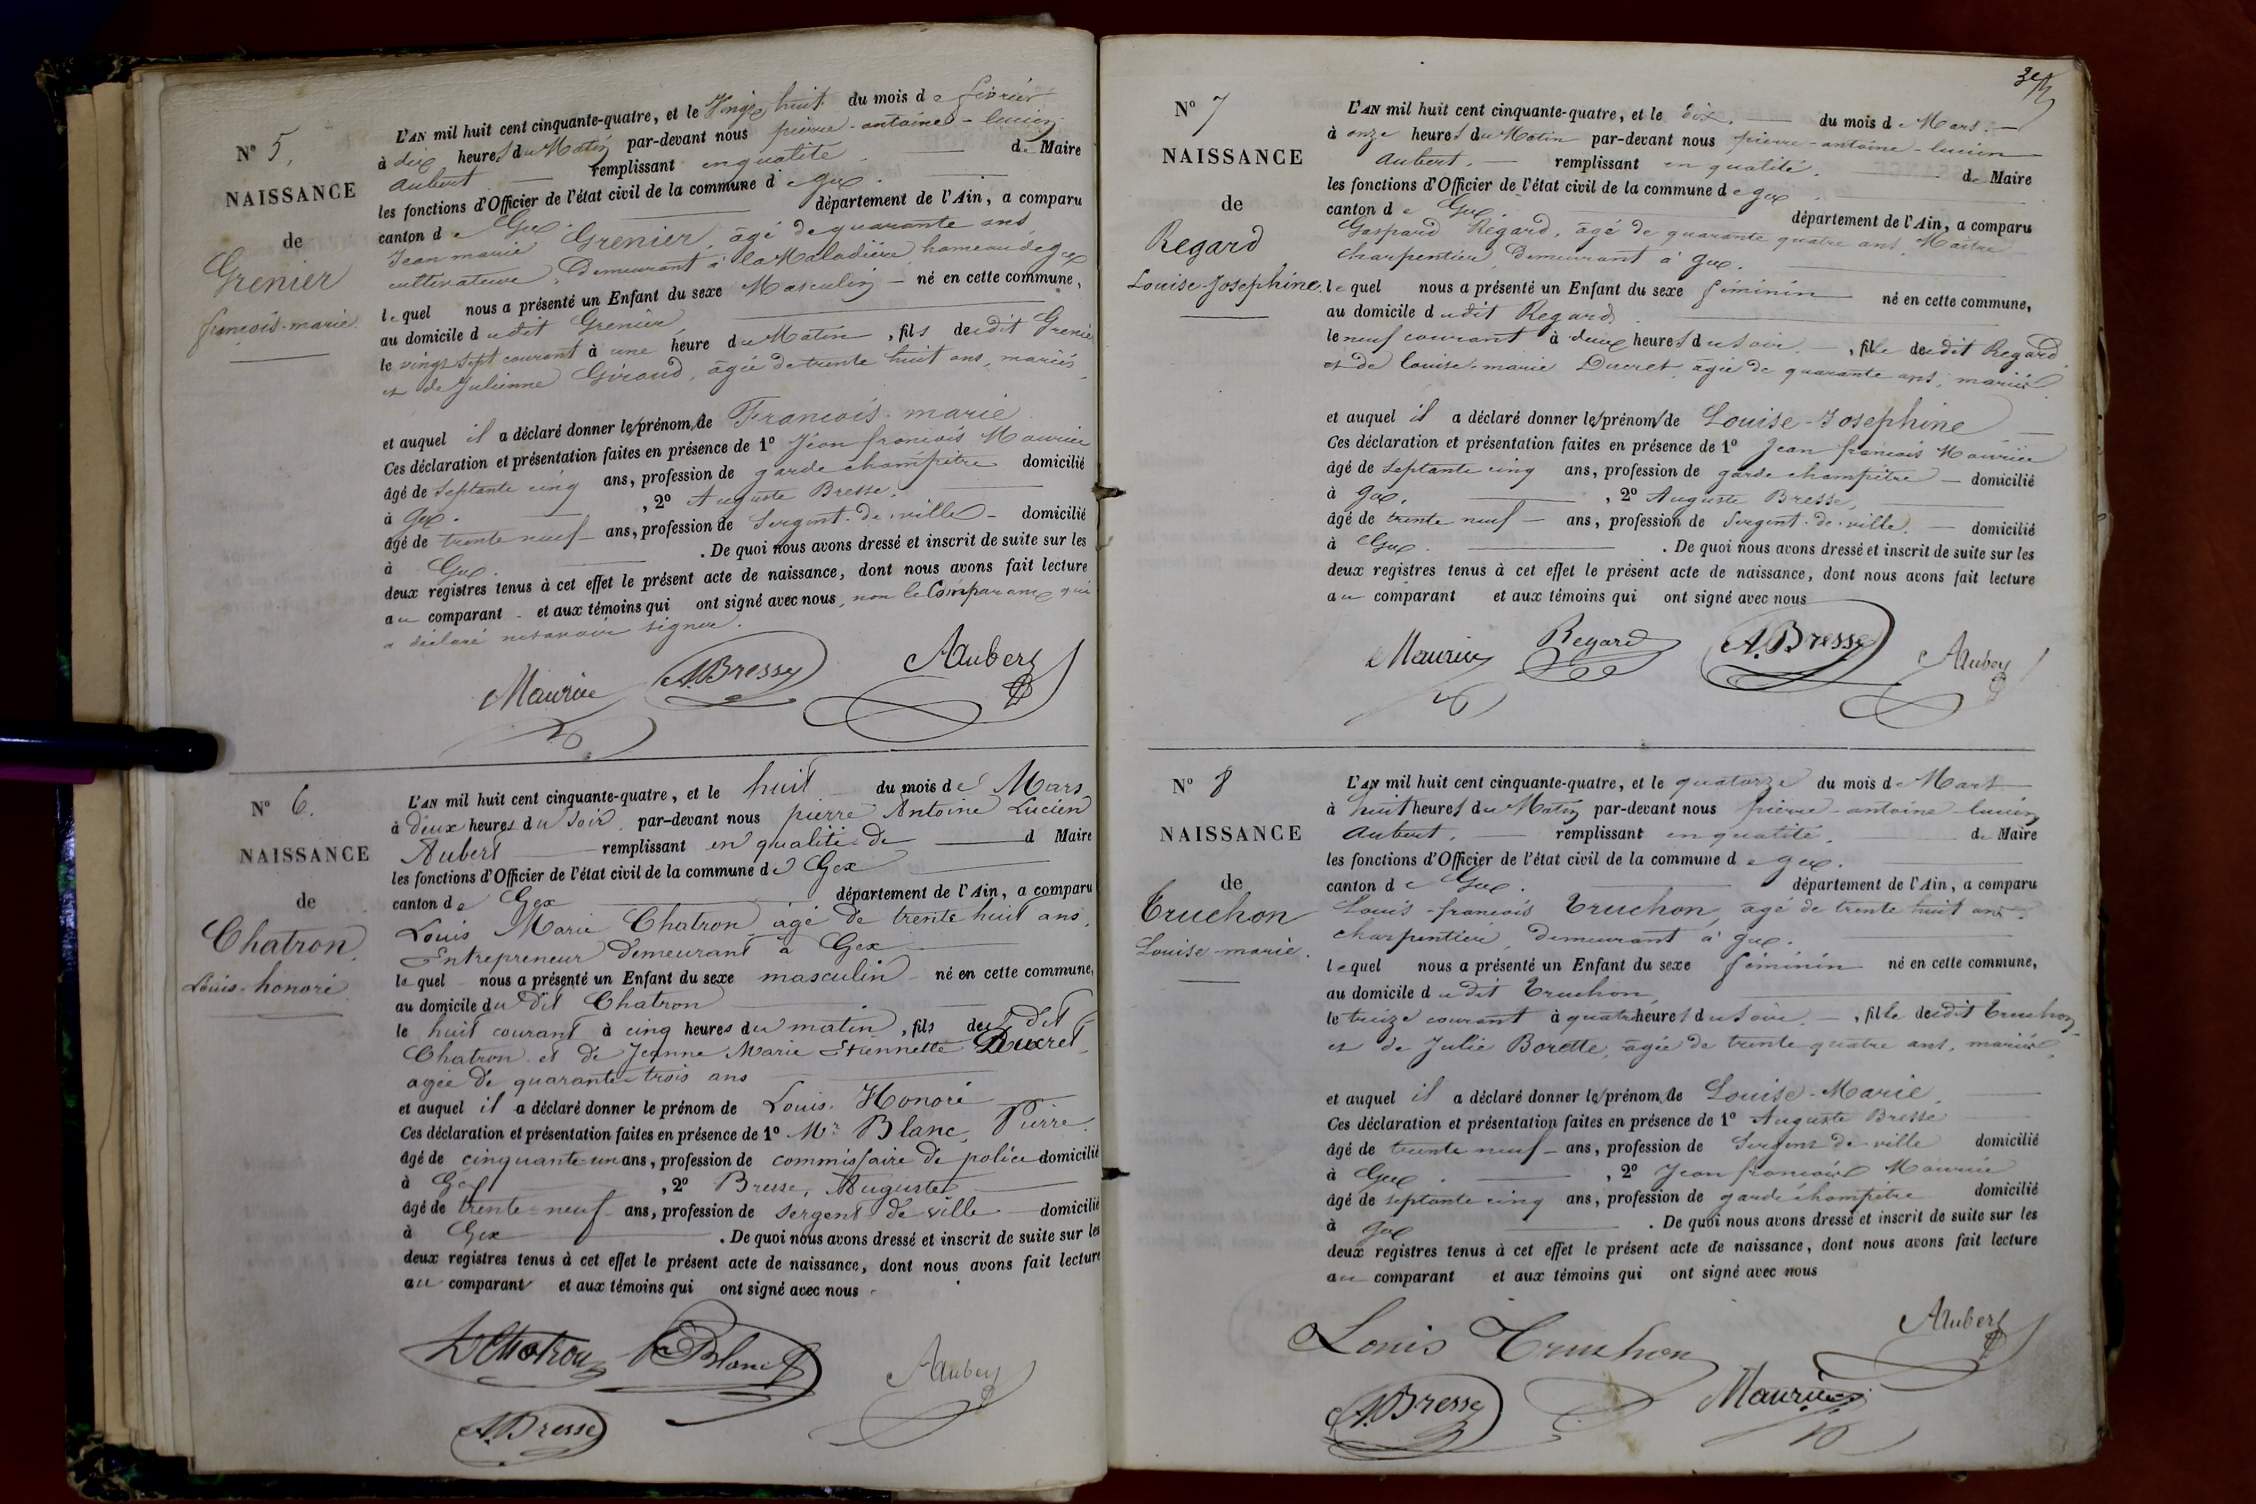 N° 5.
NAISSANCE
de
Grenier
françois-marie.
L'AN mil huit cent cinquante-quatre, et le Vingt huit du mois de février
à dix heures du Matin par-devant nous pierre-antoine-lucien
aubert remplissant en qualité de Maire
les fonctions d'Officier de l'état civil de la commune de gex.
canton de Gex. département de l'Ain, a comparu
Jean marie Grenier, âgé de quarante ans,
cultivateur, Demeurant à la Maladière, hameau de gex
lequel nous a présenté un Enfant du sexe Masculin né en cette commune,
au domicile dudit Grenier,
le vingt sept courant à une heure du Matin, fils dudit Grenier
et de Julienne Giroud, âgée de trente huit ans, mariés,
et auquel il a déclaré donner les prénoms de François-marie
Ces déclaration et présentation faites en présence de 1° Jean françois Maurier
âgé de septante cinq ans, profession de garde champêtre domicilié
à Gex. , 2° Auguste Bresse,
âgé de trente neuf ans, profession de Sergent-de-ville domicilié
à Gex. . De quoi nous avons dressé et inscrit de suite sur les
deux registres tenus à cet effet le présent acte de naissance, dont nous avons fait lecture
au comparant et aux témoins qui ont signé avec nous, non le Comparant qui
a déclaré ne savoir signer.
ABresse
Aubert
N° 6.
NAISSANCE
de
Chatron.
Louis-honoré
L'AN mil huit cent cinquante-quatre, et le huit du mois de Mars
à deux heures du Soir, par-devant nous pierre Antoine Lucien
Aubert remplissant en qualité de d Maire
les fonctions d'Officier de l'état civil de la commune de Gex
canton de Gex département de l'Ain, a comparu
Louis Marie Chatron âgé de trente huit ans,
Entrepreneur demeurant à Gex
lequel nous a présenté un Enfant du sexe masculin né en cette commune,
au domicile du dit Chatron
le huit courant à cinq heures du matin, fils du dit
Chatron et de Jeanne Marie Etiennette Ducret,
agée de quarante-trois ans
et auquel il a déclaré donner le prénom de Louis. Honoré
Ces déclaration et présentation faites en présence de 1° Mr Blanc, Pierre
âgé de cinquante un ans, profession de commissaire de police domicilié
à Gex , 2° Bresse, Auguste
âgé de trente-neuf ans, profession de sergent de ville domicilié
à Gex . De quoi nous avons dressé et inscrit de suite sur les
deux registres tenus à cet effet le présent acte de naissance, dont nous avons fait lecture
au comparant et aux témoins qui ont signé avec nous
Chatron Blanc
Aubert
ABresse
N° 7
NAISSANCE
de
Regard
Louise-Josephine.
L'AN mil huit cent cinquante-quatre, et le dix. du mois de Mars.
à onze heures du Matin par-devant nous pierre-antoine-lucien
aubert. remplissant en qualité. de Maire
les fonctions d'Officier de l'état civil de la commune de gex
canton de Gex. département de l'Ain, a comparu
Gaspard Regard, âgé de quarante quatre ans, Maître
charpentier, Demeurant à gex.
lequel nous a présenté un Enfant du sexe féminin né en cette commune,
au domicile dudit Regard.
le neuf courant à deux heures du soir. , fille dudit Regard
et de louise-marie Ducret, âgée de quarante ans, mariés
et auquel il a déclaré donner les prénoms de Louise-Josephine
Ces déclaration et présentation faites en présence de 1° Jean françois Maurier
âgé de septante cinq ans, profession de garde champêtre domicilié
à gex. , 2° Auguste Bresse,
âgé de trente neuf ans, profession de Sergent-de-ville. domicilié
à Gex. . De quoi nous avons dressé et inscrit de suite sur les
deux registres tenus à cet effet le présent acte de naissance, dont nous avons fait lecture
au comparant et aux témoins qui ont signé avec nous
Regard A.Bresse
Aubert
N° 8
NAISSANCE
de
Truchon
Louise-marie.
L'AN mil huit cent cinquante-quatre, et le quatorze du mois de Mars
à huit heures du Matin par-devant nous pierre-antoine-lucien
aubert. remplissant en qualité. de Maire
les fonctions d'Officier de l'état civil de la commune de gex.
canton de Gex. département de l'Ain, a comparu
Louis-françois Truchon, âgé de trente huit ans.
charpentier, demeurant à gex.
lequel nous a présenté un Enfant du sexe féminin né en cette commune,
au domicile dudit Truchon,
le treize courant à quatre heures du soir. , fille dudit Truchon
et de Julie Borette, âgée de trente quatre ans, mariés,
et auquel il a déclaré donner les prénoms de Louise-Marie.
Ces déclaration et présentation faites en présence de 1° Auguste Bresse
âgé de trente neuf ans, profession de Sergent de ville domicilié
à Gex. , 2° Jean françois Maurier
âgé de septante cinq ans, profession de garde champêtre domicilié
à gex . De quoi nous avons dressé et inscrit de suite sur les
deux registres tenus à cet effet le présent acte de naissance, dont nous avons fait lecture
au comparant et aux témoins qui ont signé avec nous
Aubert
Louis Truchon
ABresse